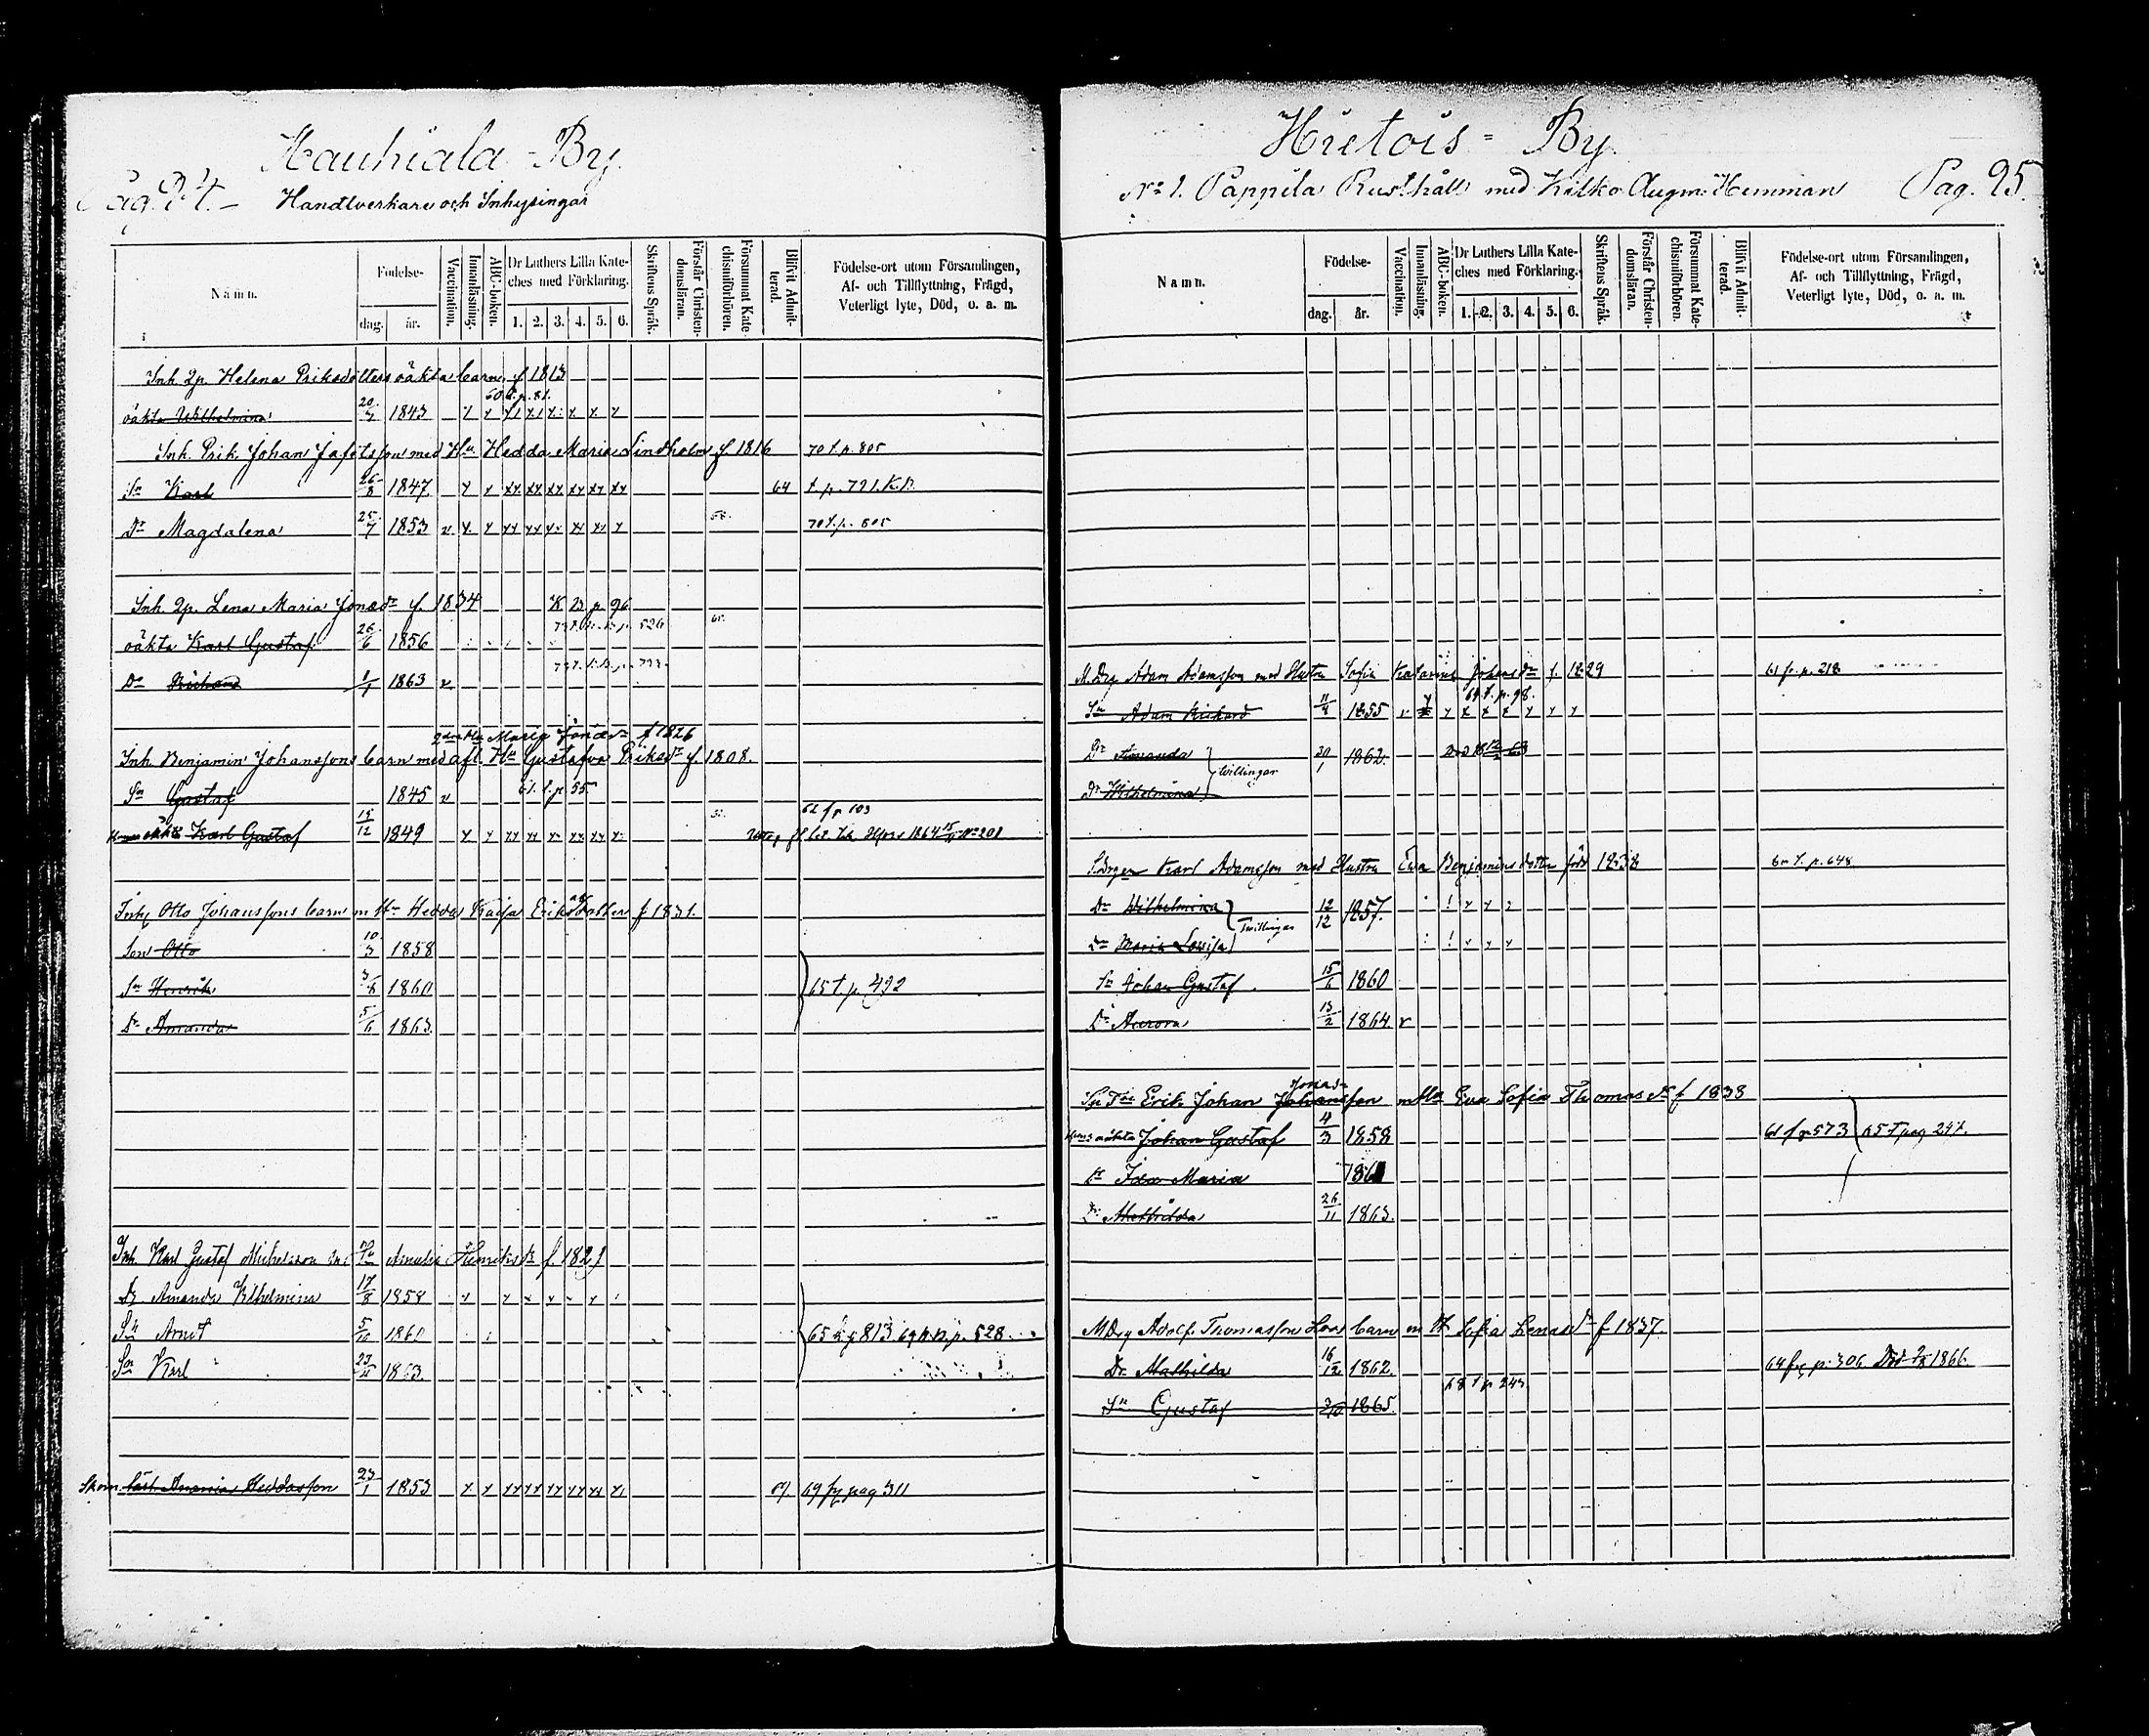 Hauhiala - By.
Pag. 94.
Handtverkare och Inhysingar
Namn.
Födelse-
dag.
år.
Vaccination.
Innanläsning.
ABC-boken.
Dr Luthers Lilla Kate-
ches med Förklaring.
1. 2. 3. 4. 5. 6.
Skriftens Språk.
Förstår Christen-
domsläran.
Försummat Kate-
chismiförhören.
Blifvit Admit-
terad.
Födelse-ort utom Församlingen,
Af- och Tillflyttning, Frägd,
Veterligt lyte, Död, o. a. m.
Inh. 2p. Helena Eriksdotters oäkta barn, f 1813
oäkta Wilhelmina 20/7 1843
Inh. Erik Johan Jafetsson med Hu Hedda Maria Lindholm f 1816 70 f. p. 805
Sn Karl 26/8 1847 64 f. p. 721. K.B.
Dr Magdalena 25/7 1853 v 70 f. p. 805
Inh. 2p. Lena Maria Jonasdr f. 1834 K B p 96
oäkta Karl Gustaf 26/6 1856
Dn Richard 1/1 1863 v
2dra Hu Maria Jonasdr f 1826
Inh Benjamin Johanssons barn med afl. Hu Gustafva Eriksdr f. 1808.
Sn Gustaf 1845 v 61. f. p 55
62 f p 103
oäkta Karl Gustaf 12 1849
Inhy Otto Johanssons barn m Hu Hedda Kajsa Eriksdotter f 1831.
Son Otto 10/3 1858
Sn Henrik 3/6 1860 65 f. p. 492
Dr Amanda 5/6 1863.
Inh. Karl Gustaf Michelsson Hu Amalia Henriksdr f. 1829
Dr Amanda Vilhelmina 17/8 1858
Sn Arvid 5/10 1860 65 813 69 K.B. p. 528.
Sn Karl 1863.
Skom. lärl. Anania Heddasson 23/1 1853 69 fy pag 311
Hietois - By.
No 1. Pappila Rusthåll med Kalko Augm. Hemman
Pag. 95.
Namn.
Födelse-
dag.
år.
Vaccination.
Innanläsning.
ABC-boken.
Dr Luthers Lilla Kate-
ches med Förklaring.
1. 2. 3. 4. 5. 6.
Skriftens Språk.
Förstår Christen-
domsläran.
Försummat Kate-
chismiförhören.
Blifvit Admit-
terad.
Födelse-ort utom Församlingen,
Af- och Tillflyttning, Frägd,
Veterligt lyte, Död, o. a. m.
M. Drg Adam Adamsson med Hustru Sofia Katarina Johansdr f. 1829 61 f. p. 218
64 f. p. 98.
Sn Adam Rickard 11/8 1855
Dr Amanda 30/1 1862.
Tvillingar
Dr Wilhelmina
S. Drgen Karl Adamsson med Hustru Eva Benjaminsdotter född 1838 f. p. 648
Dr Wilhelmina 12/12 1857.
Tvillingar
Dr Maria Lovisa
Sn Johan Gustaf 15/6 1860
Dr Aurora 13/2 1864 v
Jonas-
Erik Johan Johansson m Hu Eva Sofia Thomasdr f 1838
oäkta Johan Gustaf 4/3 1858 61 f p 573 65 f pag 247.
Dr Ida Maria 1861
Dr Mathilda 26/11 1863.
M Drg Adolf Thomasson Loos barn m H Sofia Lenasdr f 1837.
Dr Mathilda 16/12 1862. 64 fy p. 306. Död 1866.
68 f p 243
Sn Gustaf 3/10 1865.